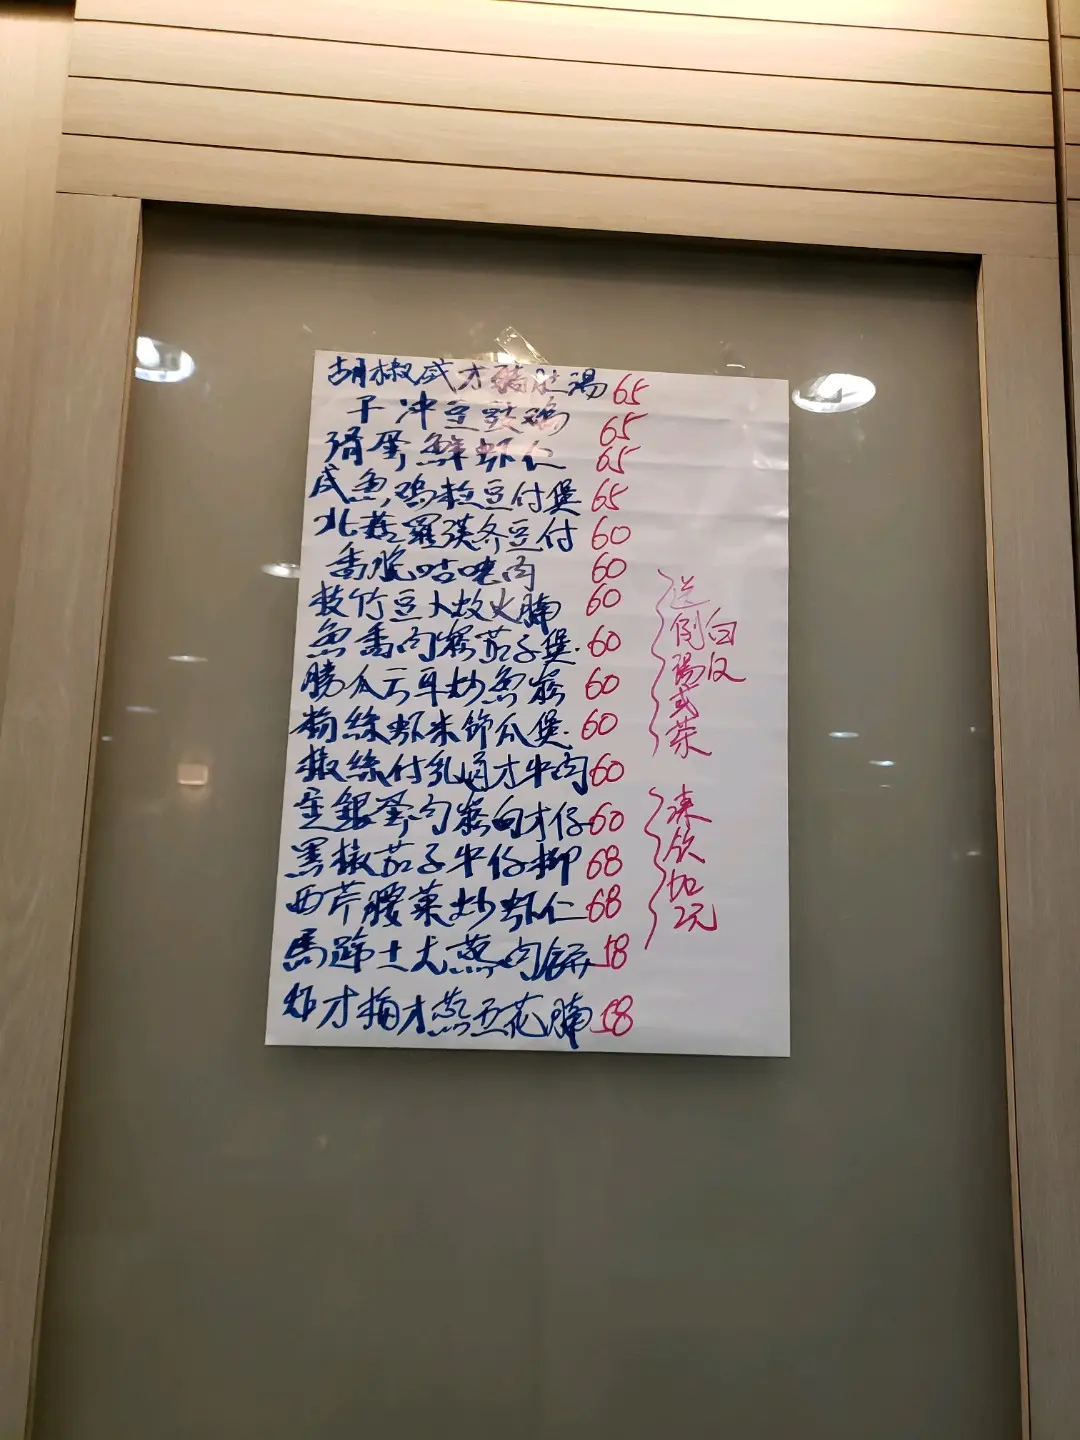 胡椒咸才豬肚湯 65
干冲豆豉鸡 65
滑蛋鮮虾仁 65
咸魚鸡粒豆付煲 65
北菇羅漢斉豆付 60
香脆咕嚕肉 60
枝竹豆卜炆火腩 60
魚香肉松茄子煲 60
勝瓜云耳炒魚松 60
粉絲虾米節瓜煲 60
椒絲付乳通才牛肉 60
金銀蛋肉松白才仔 60
黑椒茄子牛仔柳 68
西芹腰菓炒虾仁 68
馬蹄土尤蒸肉餅 58
炸才梅才蒸五花腩 58
送
例白
湯反
或菜
凍
飲
加
2元